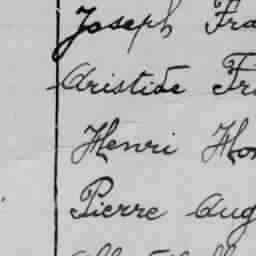 Joseph Fra
Aristide Fr
Henri Hon
Pierre Aug